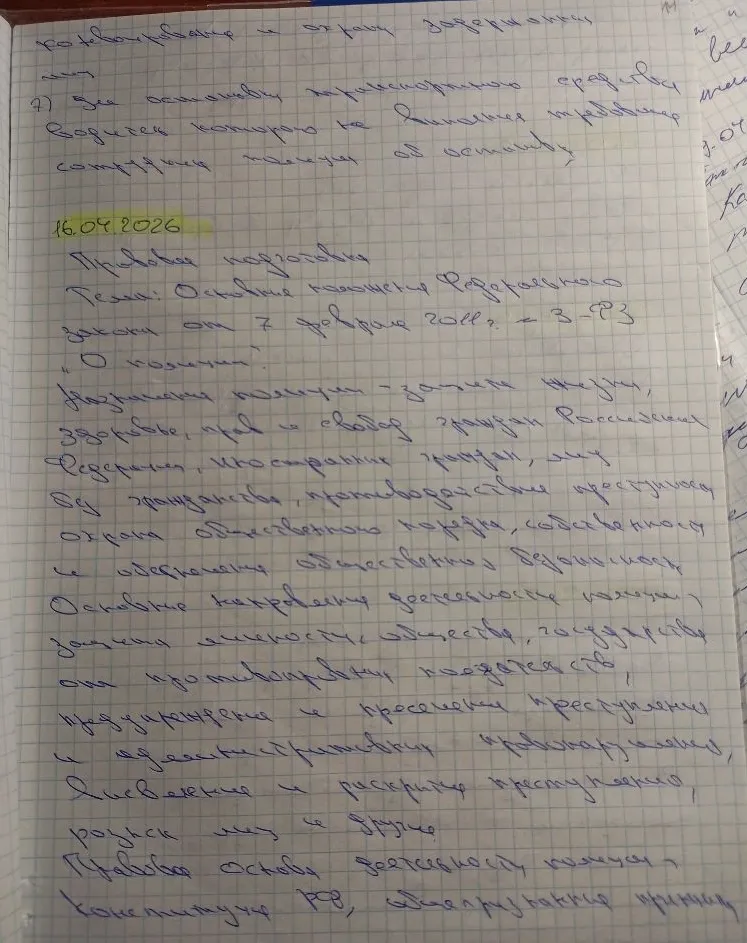 конвоирование и охрана задержанных
лиц
7) Для остановки транспортного средства
водитель которого не выполнил требование
сотрудника полиции об остановке,
16.04.2026
Правовая подготовка
Тема: Основные положения Федерального
закона от 7 февраля 2011 г. № 3-ФЗ
"О полиции".
Назначение полиции – защита жизни,
здоровье, прав и свобод граждан Российской
Федерации, иностранных граждан, лиц
без гражданства, противодействия преступности
охрана общественного порядка, собственности
и обеспечения общественной безопасности
Основные направления деятельности полиции,
защита личности, общества, государства
от противоправных посягательств,
предупреждения и пресечения преступления
и административных правонарушения,
выявление и раскрытие преступления,
розыск лиц и другие
Правовая основа деятельности полиции,
Конституция РФ, общепризнанные принципы